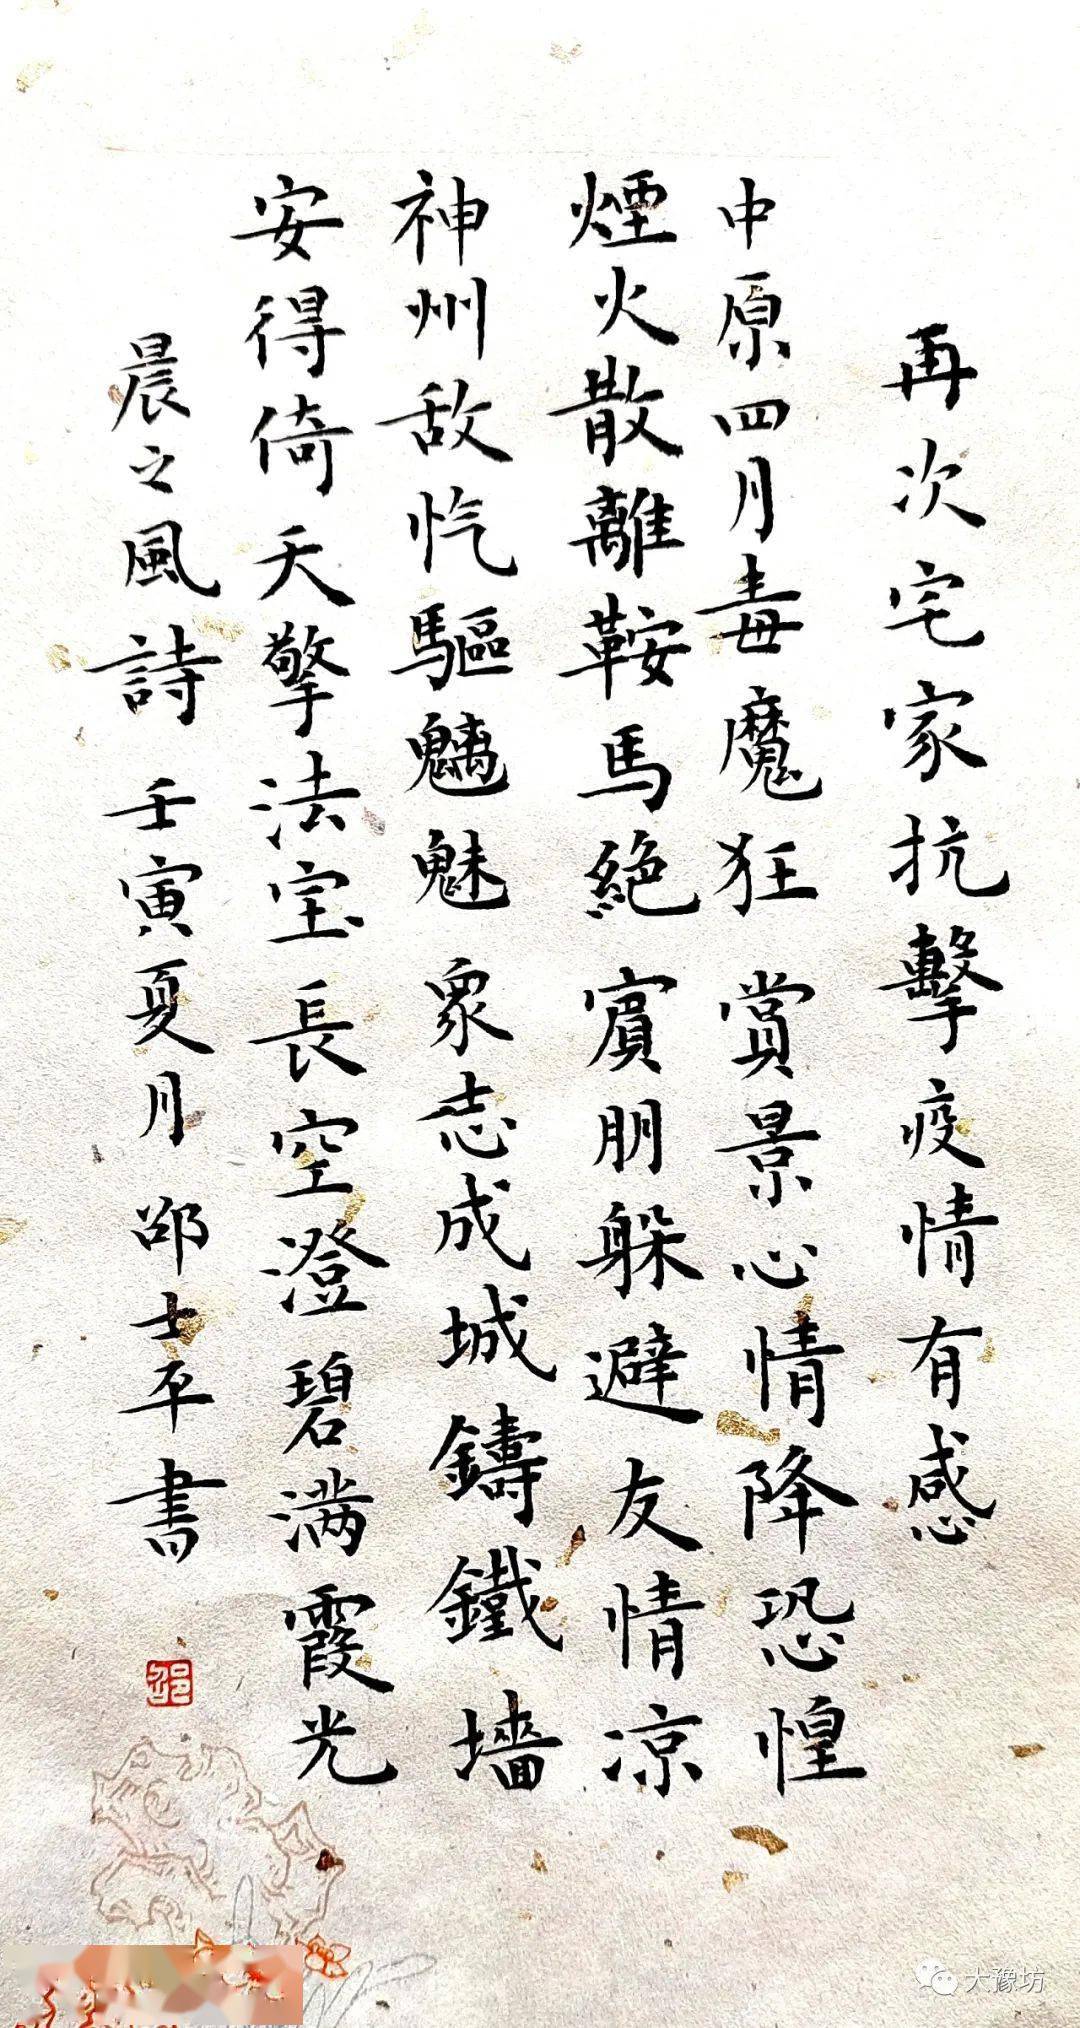 再次宅家抗擊疫情有感
中原四月毒魔狂 賞景心情降恐惶
煙火散離鞍馬絕 賓朋躲避友情凉
神州敌忾驅魑魅 眾志成城鑄鐵墻
安得倚天擎法宝 長空澄碧满霞光
晨之風詩 壬寅夏月 邵士平書
大豫坊